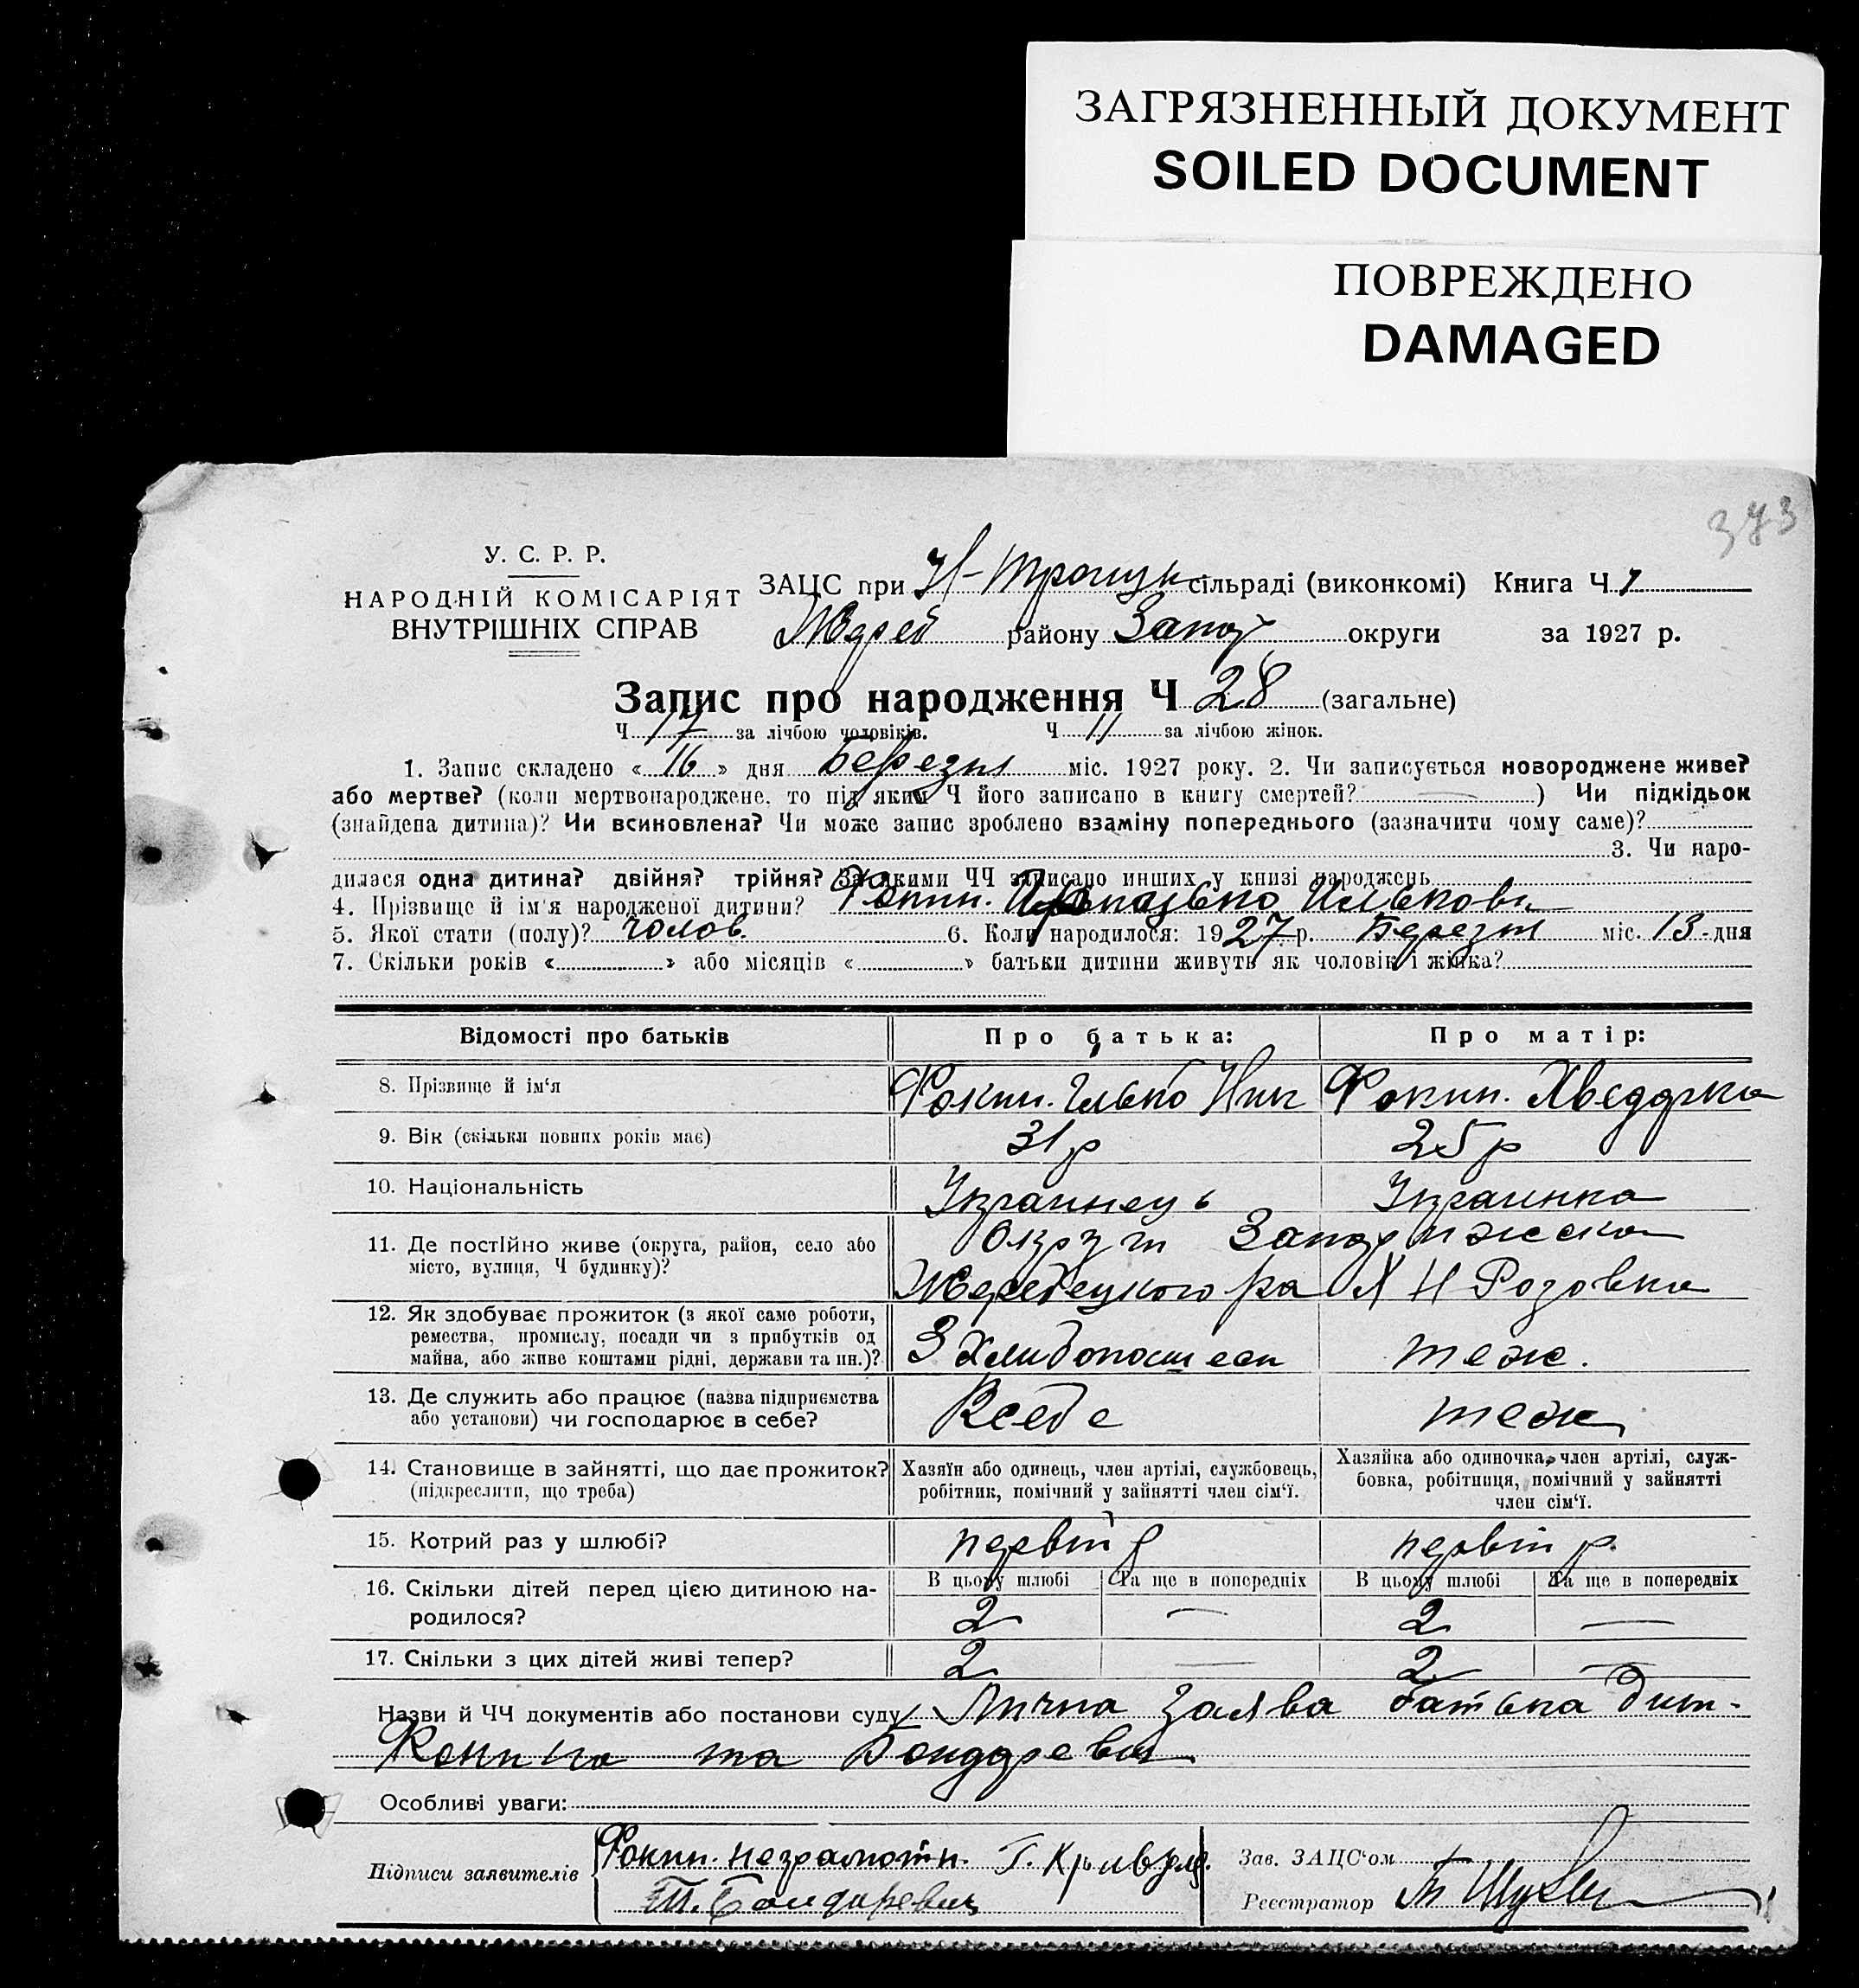 ЗАГРЯЗНЕННЫЙ ДОКУМЕНТ
SOILED DOCUMENT
ПОВРЕЖДЕНО
DAMAGED
373
У. С. Р. Р.
НАРОДНІЙ КОМІСАРІЯТ
ВНУТРІШНІХ СПРАВ
ЗАЦС при Н-Троицьк сільраді (виконкомі) Книга Ч. 1
Жереб району Запор округи за 1927 р.
Запис про народження Ч 28 (загальне)
Ч 17 за лічбою чоловіків. Ч 11 за лічбою жінок.
1. Запис складено « 16 » дня Березня міс. 1927 року. 2. Чи записується новороджене живе?
або мертве? (коли мертвонароджене, то під яким Ч його записано в книгу смертей? — ) Чи підкідьок
(знайдена дитина)? Чи всиновлена? Чи може запис зроблено взаміну попереднього (зазначити чому саме)?
3. Чи наро-
дилася одна дитина? двійня? трійня? За якими ЧЧ записано инших у книзі народжень
4. Прізвище й ім'я народженої дитини? Фокин.
5. Якої стати (полу)? чолов. 6. Коли народилося: 1927 р. Березня міс. 13 дня
7. Скільки років «        » або місяців «        » батьки дитини живуть як чоловік і жінка?
Відомості про батьків Про батька: Про матір:
8. Прізвище й ім'я Фокин. Илько Ник Фокин. Хведорка
9. Вік (скільки повних років має) 31 р 25 р
10. Національність Українець Українка
11. Де постійно живе (округа, район, село або Округи Запоріжска
місто, вулиця, Ч будинку)? Жеребецкого ра Х Н Розовка
12. Як здобуває прожиток (з якої саме роботи,
ремества, промислу, посади чи з прибутків од
майна, або живе коштами рідні, держави та ин.)? З Хлибопашеен теж.
13. Де служить або працює (назва підприємства
або установи) чи господарює в себе? Всебе теж
14. Становище в зайнятті, що дає прожиток?
(підкреслити, що треба)
Хазяїн або одинець, член артілі, службовець,
робітник, помічний у зайнятті член сім'ї.
Хазяйка або одиночка, член артілі, служ-
бовка, робітниця, помічний у зайнятті
член сім'ї.
15. Котрий раз у шлюбі? первій р первій р.
В цьому шлюбі Та ще в попередніх В цьому шлюбі Та ще в попередніх
16. Скільки дітей перед цією дитиною на-
родилося? 2 — 2 —
17. Скільки з цих дітей живі тепер? 2 — 2 —
Назви й ЧЧ документів або постанови суду Лична заява батька дит-
та Бондаревич
Особливі уваги:
Підписи заявителів Фокин. неграмотн. Г. Кривуля.
Т. Бондаревич
Зав. ЗАЦС'ом
Реєстратор